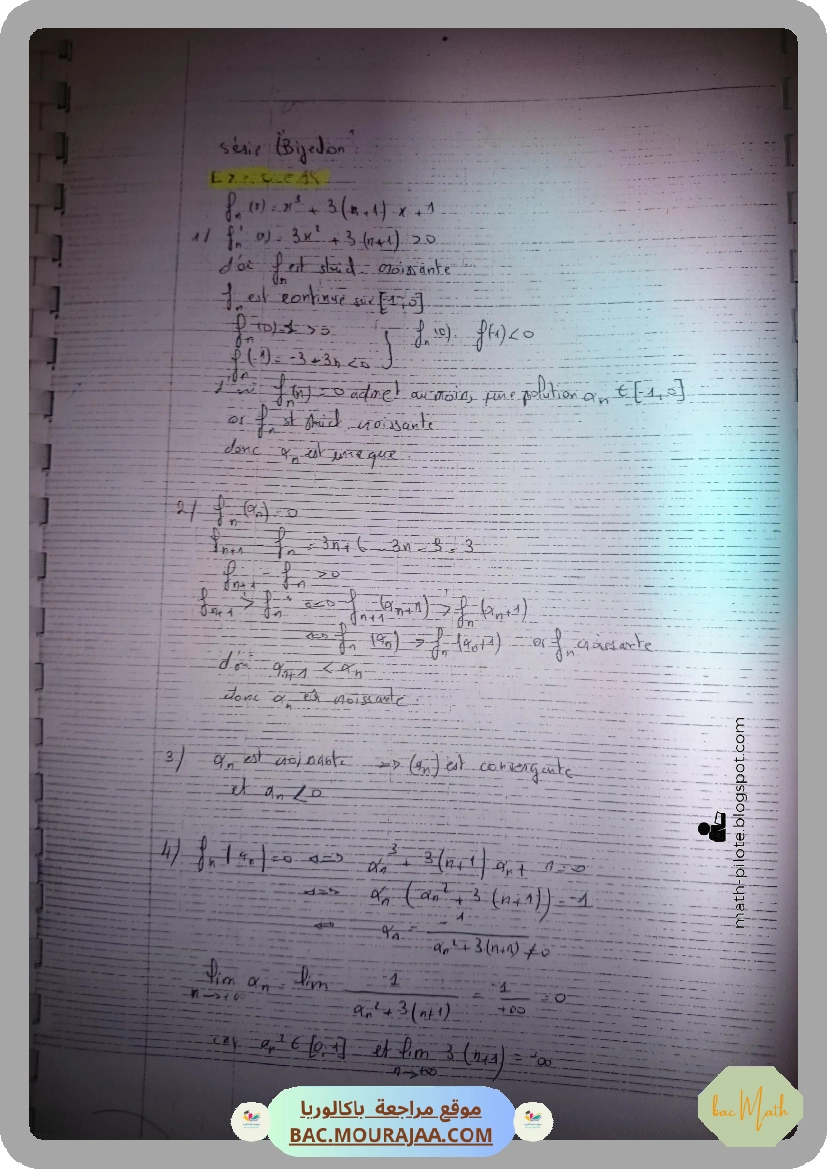 série "Bijection"
f_n(x) = x³ + 3(n+1) x + 1
1/ f_n'(x) = 3x² + 3(n+1) > 0
d'où f_n est strict croissante
f_n est continue sur [-1, 0]
f_n(0) = 1 > 0
f_n(-1) = -3 + 3n < 0
f_n(0). f(-1) < 0
f_n(x) = 0 admet au moins une solution α_n ∈ [-1, 0]
or f_n est strict croissante
donc α_n est unique.
2/ f_n(α_n) = 0
f_{n+1} - f_n = 3n+6 - 3n - 3 = 3
f_{n+1} - f_n > 0
f_{n+1} > f_n <=> f_{n+1}(α_{n+1}) > f_n(α_{n+1})
<=> f_n(α_n) > f_n(α_{n+1}) or f_n croissante
d'où α_{n+1} < α_n
donc α_n est croissante.
3) α_n est croissante => (α_n) est convergente
et α_n < 0
4) f_n(α_n) = 0 <=> α_n³ + 3(n+1) α_n + 1 = 0
<=> α_n (α_n² + 3(n+1)) = -1
<=> α_n = -1 / α_n² + 3(n+1) ≠ 0
lim α_n = lim -1 / α_n² + 3(n+1) = -1 / +∞ = 0
n→+∞
car α_n² ∈ [0, 1] et lim 3(n+1) = +∞
n→+∞
math-pilote.blogspot.com
موقع مراجعة باكالوريا
BAC.MOURAJAA.COM
bac Math